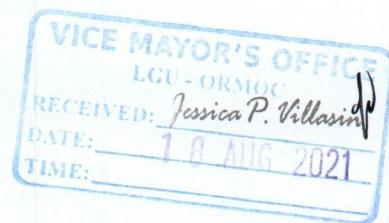 VICE MAYOR'S OFFICE
LGU - ORMOC
RECEIVED: Jessica P. Villasin
DATE: 18 AUG 2021
TIME: